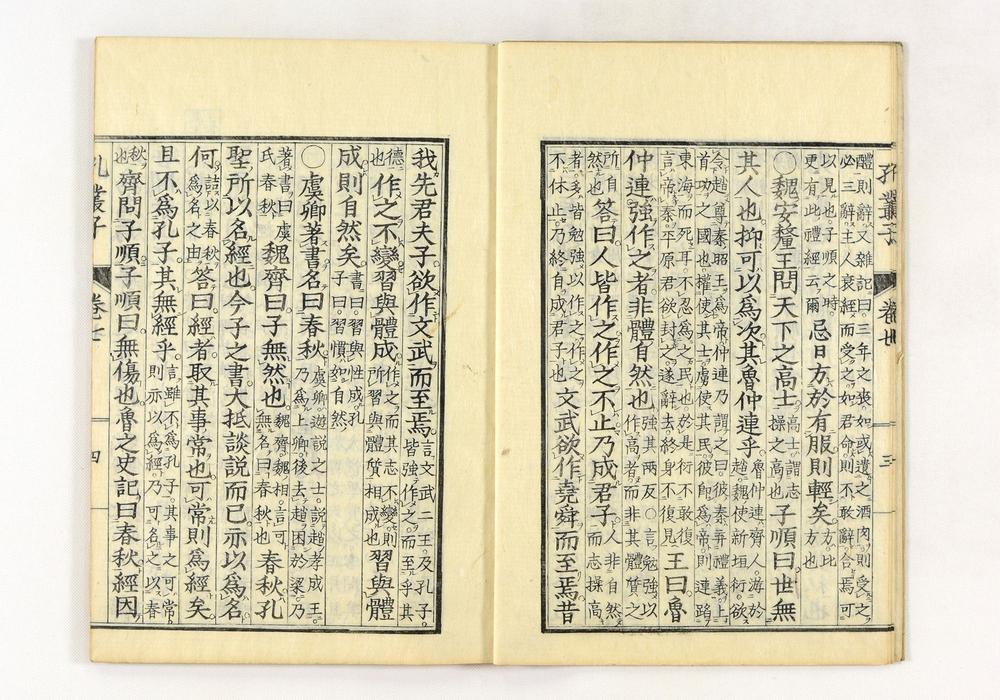 孔叢子
三
醴則辭又雜記曰三年之喪如或遺之酒肉則受之
必三辭主人衰絰而受之如君命則不敢辭合焉可
以見也子順之時
更有此禮經云爾
忌日方於有服則輕矣
方比
方也
○魏安釐王問天下之高士
高士謂志
操之高也
子順曰世無
其人也抑可以爲次其魯仲連乎
魯仲連齊人游於
趙魏使新垣衍欲
令趙尊秦昭王爲帝仲連乃謂之曰彼秦棄禮義上
首功之國也權使其士虜使其民彼即爲帝則連蹈
東海而死耳不忍爲之民也於是衍不敢復
言帝秦平原君欲封之遂辭去終身不復見
王曰魯
仲連強作之者非體自然也
強其兩反○言勉強以
作高者而非其體質之
所自
然也
答曰人皆作之作之不止乃成君子
人非自然
而志操高
者多皆勉強以作之作之
不休止乃終自成君子也
文武欲作堯舜而至焉昔
我先君夫子欲作文武而至焉
言文武二王及孔子
皆強作之而至乎其
德
也
作之不變習與體成
作之而其志不變則
所習與體質相成也
習與體
成則自然矣
書曰習與性成孔
子曰習慣如自然
○虞卿著書名曰春秋
虞卿游說之士說趙孝成王
乃爲上卿後去趙困於梁乃
著書曰虞
氏春秋
魏齊曰子無然也
魏齊魏相言可
無名曰春秋也
春秋孔
聖所以名經也今子之書大抵談說而已亦以爲名
何
詰以春秋
爲名之由
答曰經者取其事常也可常則爲經矣
且不爲孔子其無經乎
言雖不爲孔子其事之可常
則亦以爲經乃可名之以春
秋
也
齊問子順子順曰無傷也魯之史記曰春秋經因
孔叢子
卷七
四